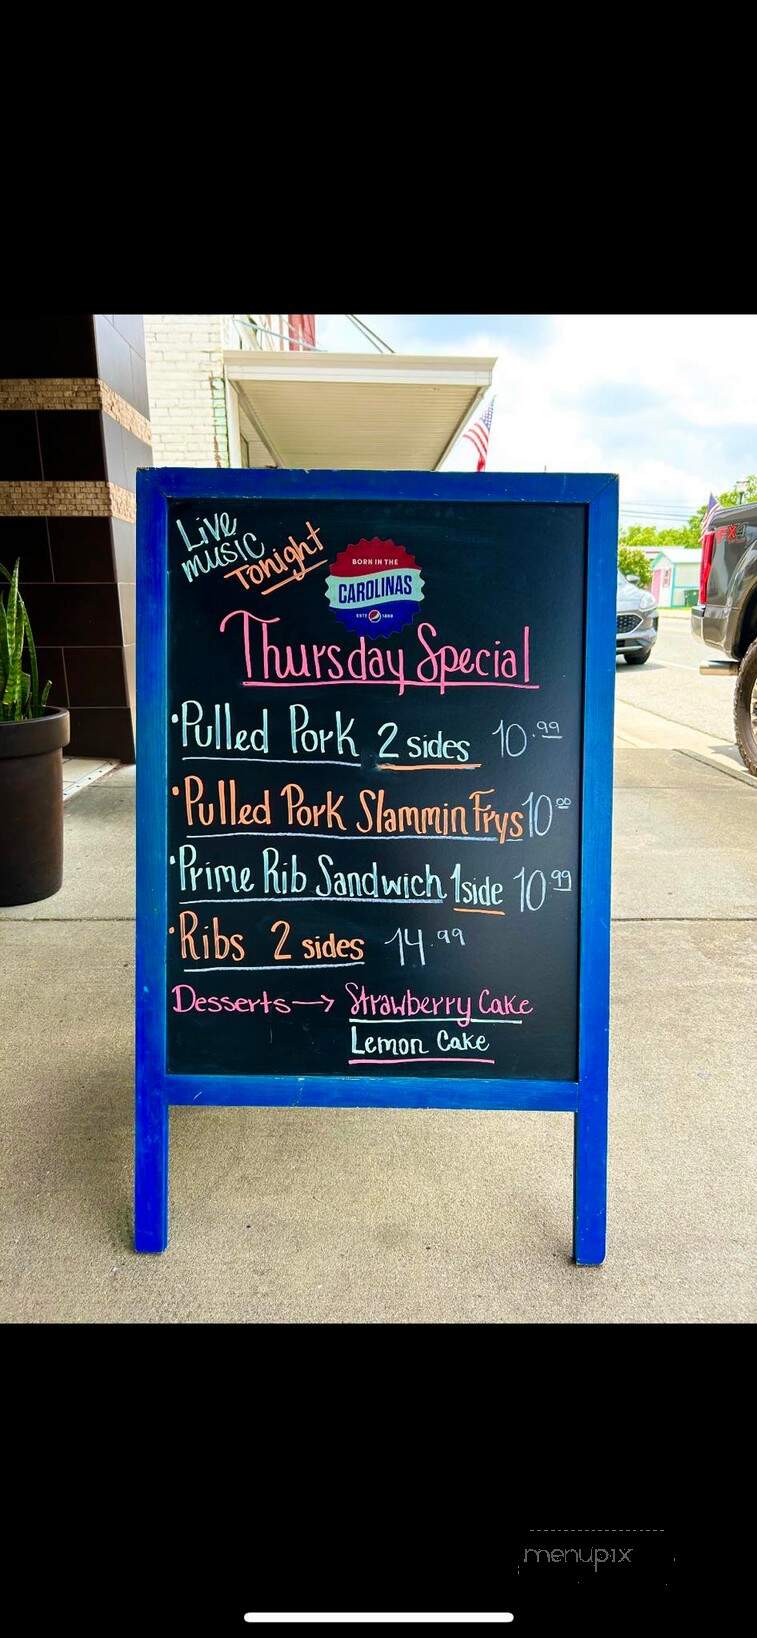 Live
music
Tonight
BORN IN THE
CAROLINAS
ESTD 1898
Thursday Special
·Pulled Pork 2 sides 10.99
·Pulled Pork Slammin Frys 10.00
·Prime Rib Sandwich 1side 10.99
·Ribs 2 sides 14.99
Desserts→ Strawberry Cake
Lemon Cake
FX4
menupix